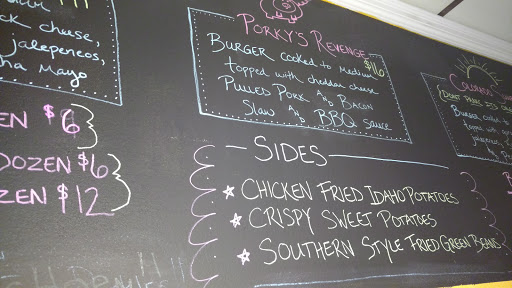 ck cheese,
Jalapenos,
Mayo
EN $6
DOZEN $6
ZEN $12
PORKY'S REVENGE
$16
BURGER cooked to Medium
topped with cheddar cheese
PULLED PORK AND BACON
Slaw AND BBQ sauce
SIDES
CHICKEN FRIED IDAHO POTATOES
CRISPY SWEET POTATOES
SOUTHERN STYLE FRIED GREEN BEANS
Burger
topped with